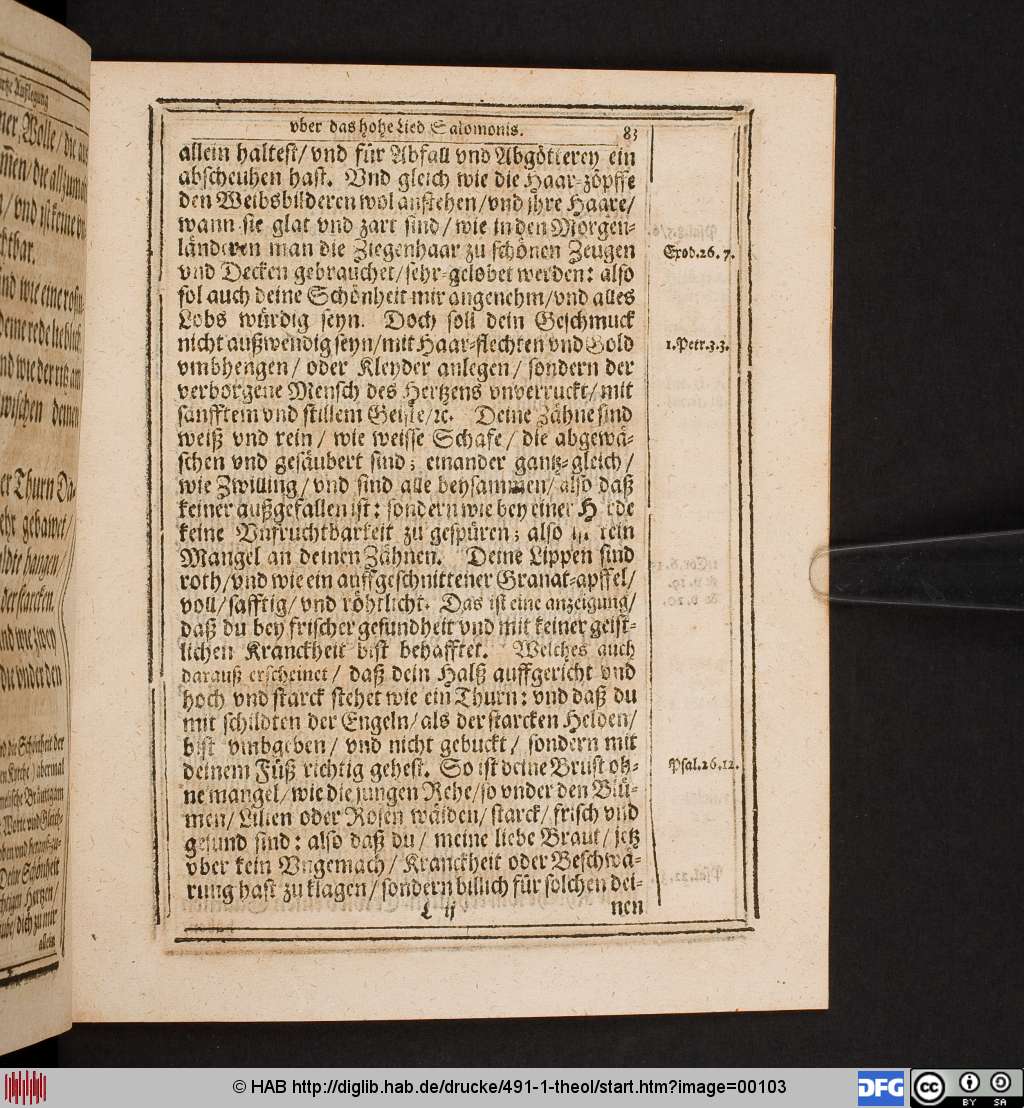 vber das hohe Lied Salomonis. 83
allein haltest/ vnd für Abfall vnd Abgötterey ein
abscheuhen hast. Vnd gleich wie die Haar-zöpffe
den Weibsbilderen wol anstehen/ vnd jhre Haare/
wann sie glat vnd zart sind/ wie in den Morgen-
länderen man die Ziegenhaar zu schönen Zeugen
vnd Decken gebrauchet/ sehr-gelobet werden: also
sol auch deine Schönheit mir angenehm/ vnd alles
Lobs würdig seyn. Doch soll dein Geschmuck
nicht außwendig seyn/ mit Haar-flechten vnd Gold
vmbhengen/ oder Kleyder anlegen/ sondern der
verborgene Mensch des Hertzens vnverruckt/ mit
sanfftem vnd stillem Geiste/ ꝛc. Deine Zähne sind
weiß vnd rein/ wie weisse Schafe/ die abgewä-
schen vnd gesäubert sind; einander gantz-gleich/
wie Zwilling/ vnd sind alle beysammen/ also daß
keiner außgefallen ist: sondern wie bey einer H rde
keine Vnfruchtbarkeit zu gespüren; also ist kein
Mangel an deinen Zähnen. Deine Lippen sind
roth/ vnd wie ein auffgeschnittener Granat-apffel/
voll/ safftig/ vnd röhtlicht. Das ist eine anzeigung/
daß du bey frischer gesundheit vnd mit keiner geist-
lichen Kranckheit bist behafftet. Welches auch
darauß erscheinet/ daß dein Halß auffgericht vnd
hoch vnd starck stehet wie ein Thurn: vnd daß du
mit schildten der Engeln/ als der starcken Helden/
bist vmbgeben/ vnd nicht gebuckt/ sondern mit
deinem Füß richtig gehest. So ist deine Brust oh-
ne mangel/ wie die jungen Rehe/ so vnder den Blü-
men/ Lilien oder Rosen wäiden/ starck/ frisch vnd
gesund sind: also daß du/ meine liebe Braut/ jetz
vber kein Vngemach/ Kranckheit oder Beschwä-
rung hast zu klagen/ sondern billich für solchen dei-
L ij nen
Exod. 26. 7.
1. Petr. 3. 3.
Psal. 26. 12.
ner Wolle/ die aus
/ vnd ist keine vn
chtbar.
nd wie eine rosin-
deine rede lieblich.
nd wie der ritz am
zwischen deinen
er Thurn Da-
ehr gebawet/
ildte hangen/
der starcken.
nd wie zwey
die vnder den
nd die Schönheit der
en Kirche) abermal
Deine Schönheit
dich zu mir
allein
© HAB http://diglib.hab.de/drucke/491-1-theol/start.htm?image=00103
DFG
cc
BY SA